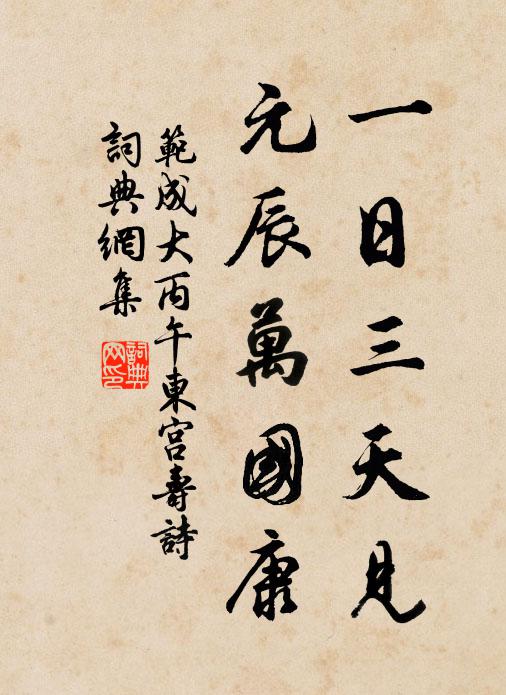 一日三天見
元辰萬國康
範成大丙午東宮壽詩
詞典網集
詞典網印